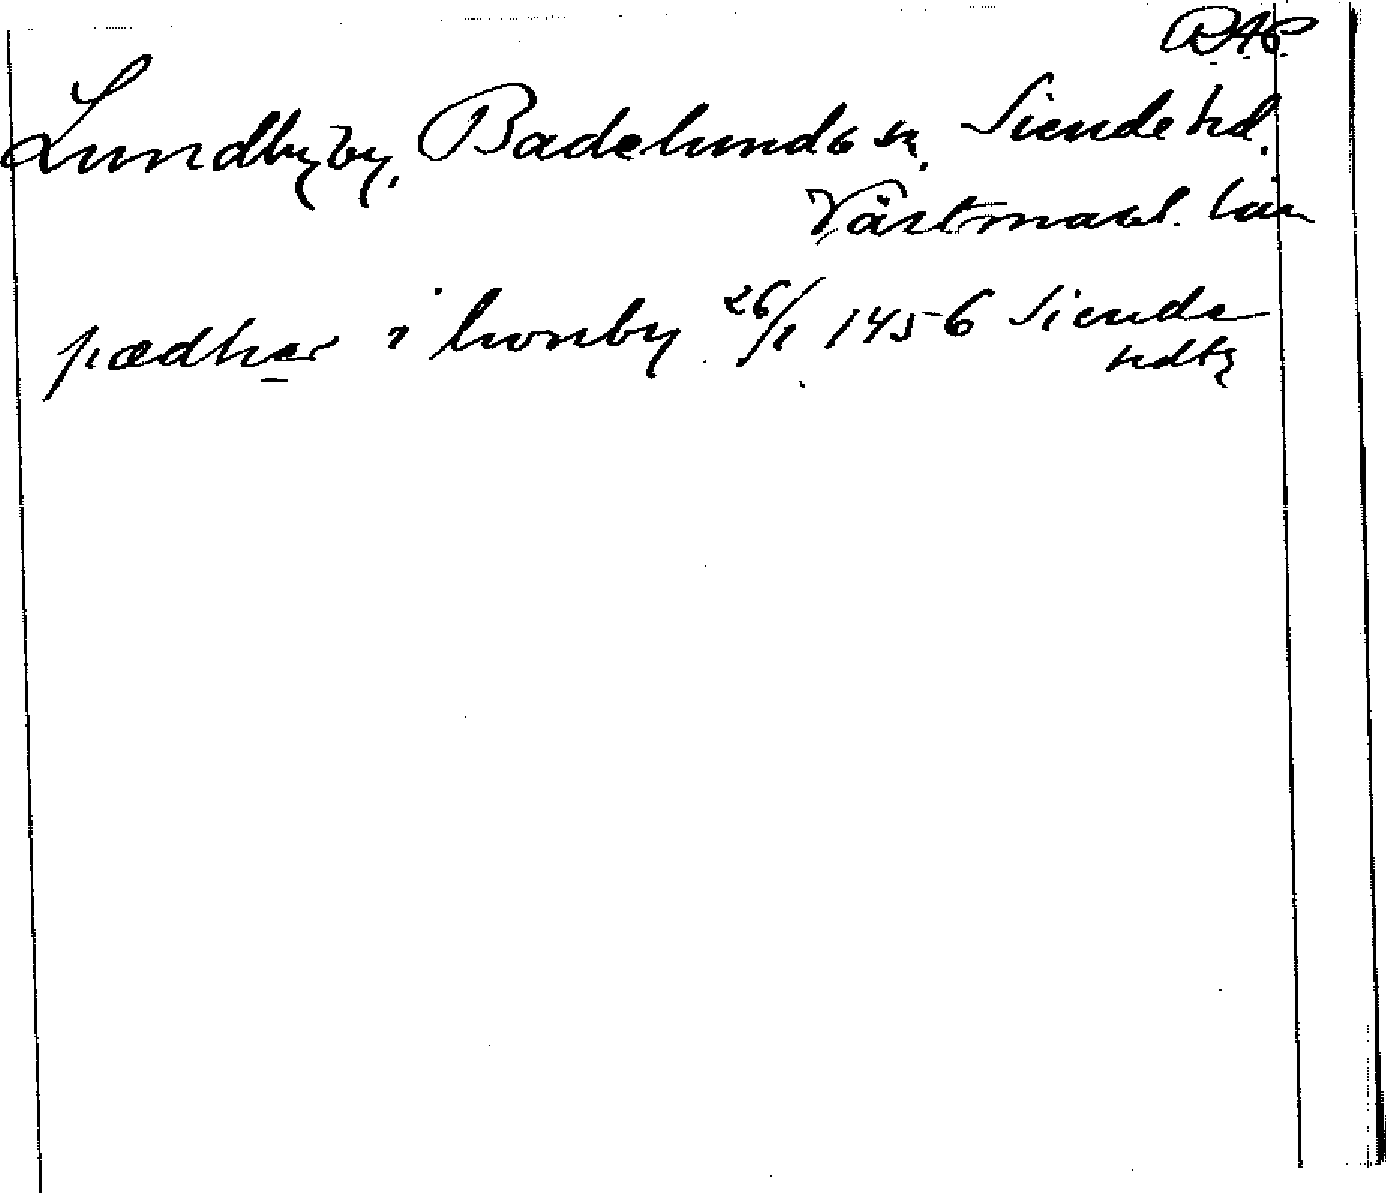 RAP
Lundby by, Badelunda sn, Siende hd.
Västmanl. län
pædher i lwnby 26/1 1456 Siende
hdtg